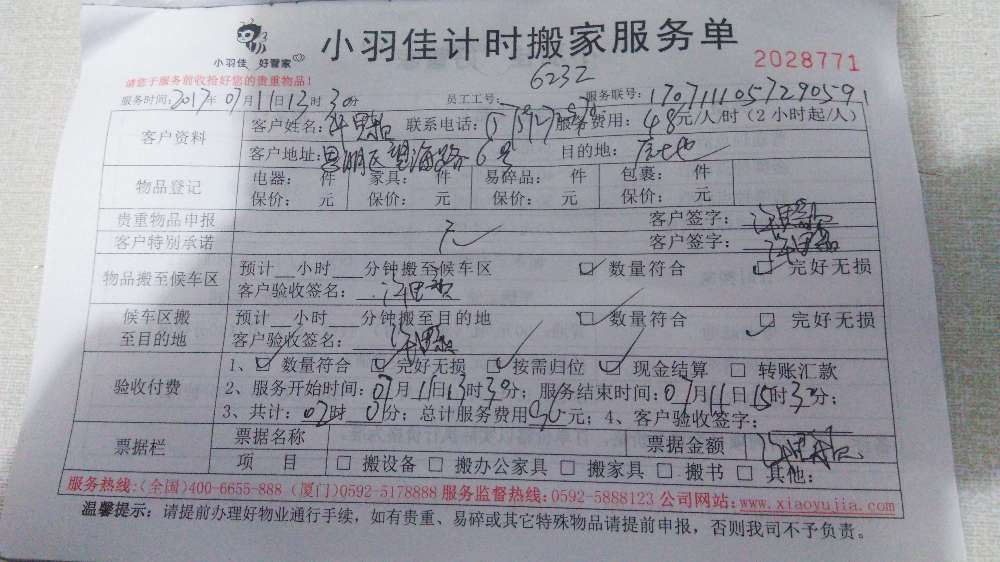 小羽佳 好管家
小羽佳计时搬家服务单
2028771
请您于服务前收拾好您的贵重物品!
6232
服务时间:2017年07月11日13时30分 员工工号: 服务联号:170711105729059
客户资料 客户姓名: 联系电话: 服务费用:48元/人/时(2小时起/人)
客户地址:思明区望海路6号 目的地:
物品登记 电器: 件 家具: 件 易碎品: 件 包裹: 件
保价: 元 保价: 元 保价: 元 保价: 元
贵重物品申报 客户签字:
客户特别承诺 无 客户签字:
物品搬至候车区 预计__小时___分钟搬至候车区 ☑数量符合 ☑完好无损
客户验收签名:
候车区搬至目的地 预计__小时___分钟搬至目的地 ☑数量符合 ☑完好无损
客户验收签名:
验收付费 1、☑数量符合 ☑完好无损 ☑按需归位 ☑现金结算 □转账汇款
2、服务开始时间:07月11日13时30分;服务结束时间:07月11日15时30分;
3、共计:02时0分;总计服务费用 元;4、客户验收签字:
票据栏 票据名称 票据金额
项 目 □搬设备 □搬办公家具 □搬家具 □搬书 □其他:
服务热线:(全国)400-6655-888 (厦门)0592-5178888 服务监督热线:0592-5888123 公司网站:www.xiaoyujia.com
温馨提示:请提前办理好物业通行手续,如有贵重、易碎或其它特殊物品请提前申报,否则我司不予负责。